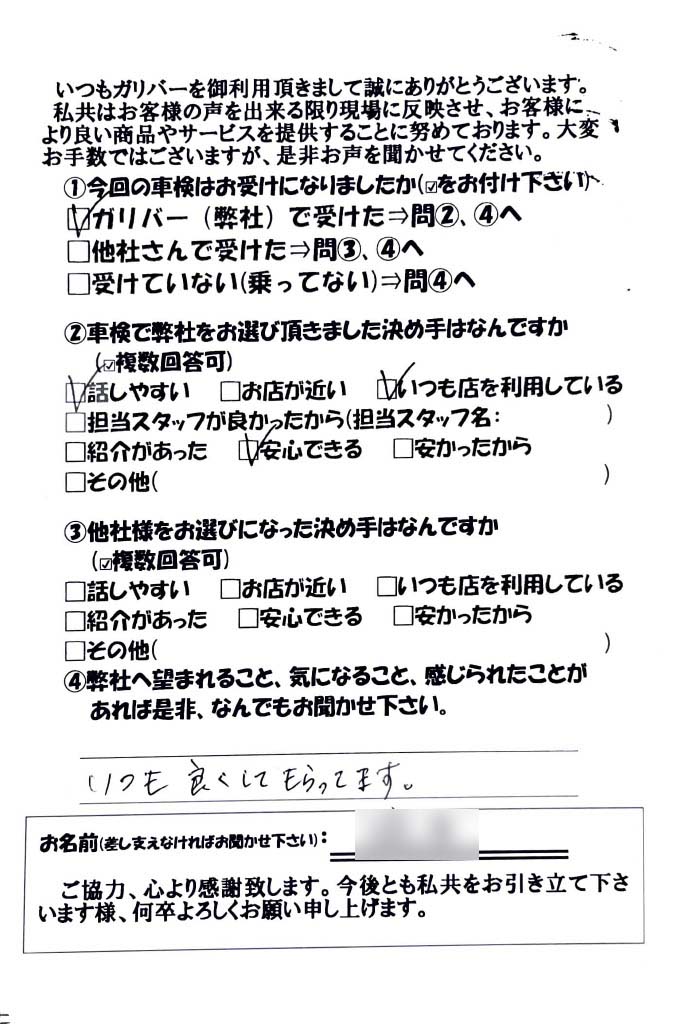 いつもガリバーを御利用頂きまして誠にありがとうございます。
私共はお客様の声を出来る限り現場に反映させ、お客様に
より良い商品やサービスを提供することに努めております。大変
お手数ではございますが、是非お声を聞かせてください。
①今回の車検はお受けになりましたか(☑をお付け下さい)
☑ガリバー（弊社）で受けた⇒問②、④へ
□他社さんで受けた⇒問③、④へ
□受けていない(乗ってない)⇒問④へ
②車検で弊社をお選び頂きました決め手はなんですか
(☑複数回答可)
☑話しやすい □お店が近い ☑いつも店を利用している
□担当スタッフが良かったから(担当スタッフ名: )
□紹介があった ☑安心できる □安かったから
□その他( )
③他社様をお選びになった決め手はなんですか
(☑複数回答可)
□話しやすい □お店が近い □いつも店を利用している
□紹介があった □安心できる □安かったから
□その他( )
④弊社へ望まれること、気になること、感じられたことが
あれば是非、なんでもお聞かせ下さい。
いつも良くしてもらってます。
お名前(差し支えなければお聞かせ下さい):
ご協力、心より感謝致します。今後とも私共をお引き立て下さ
います様、何卒よろしくお願い申し上げます。